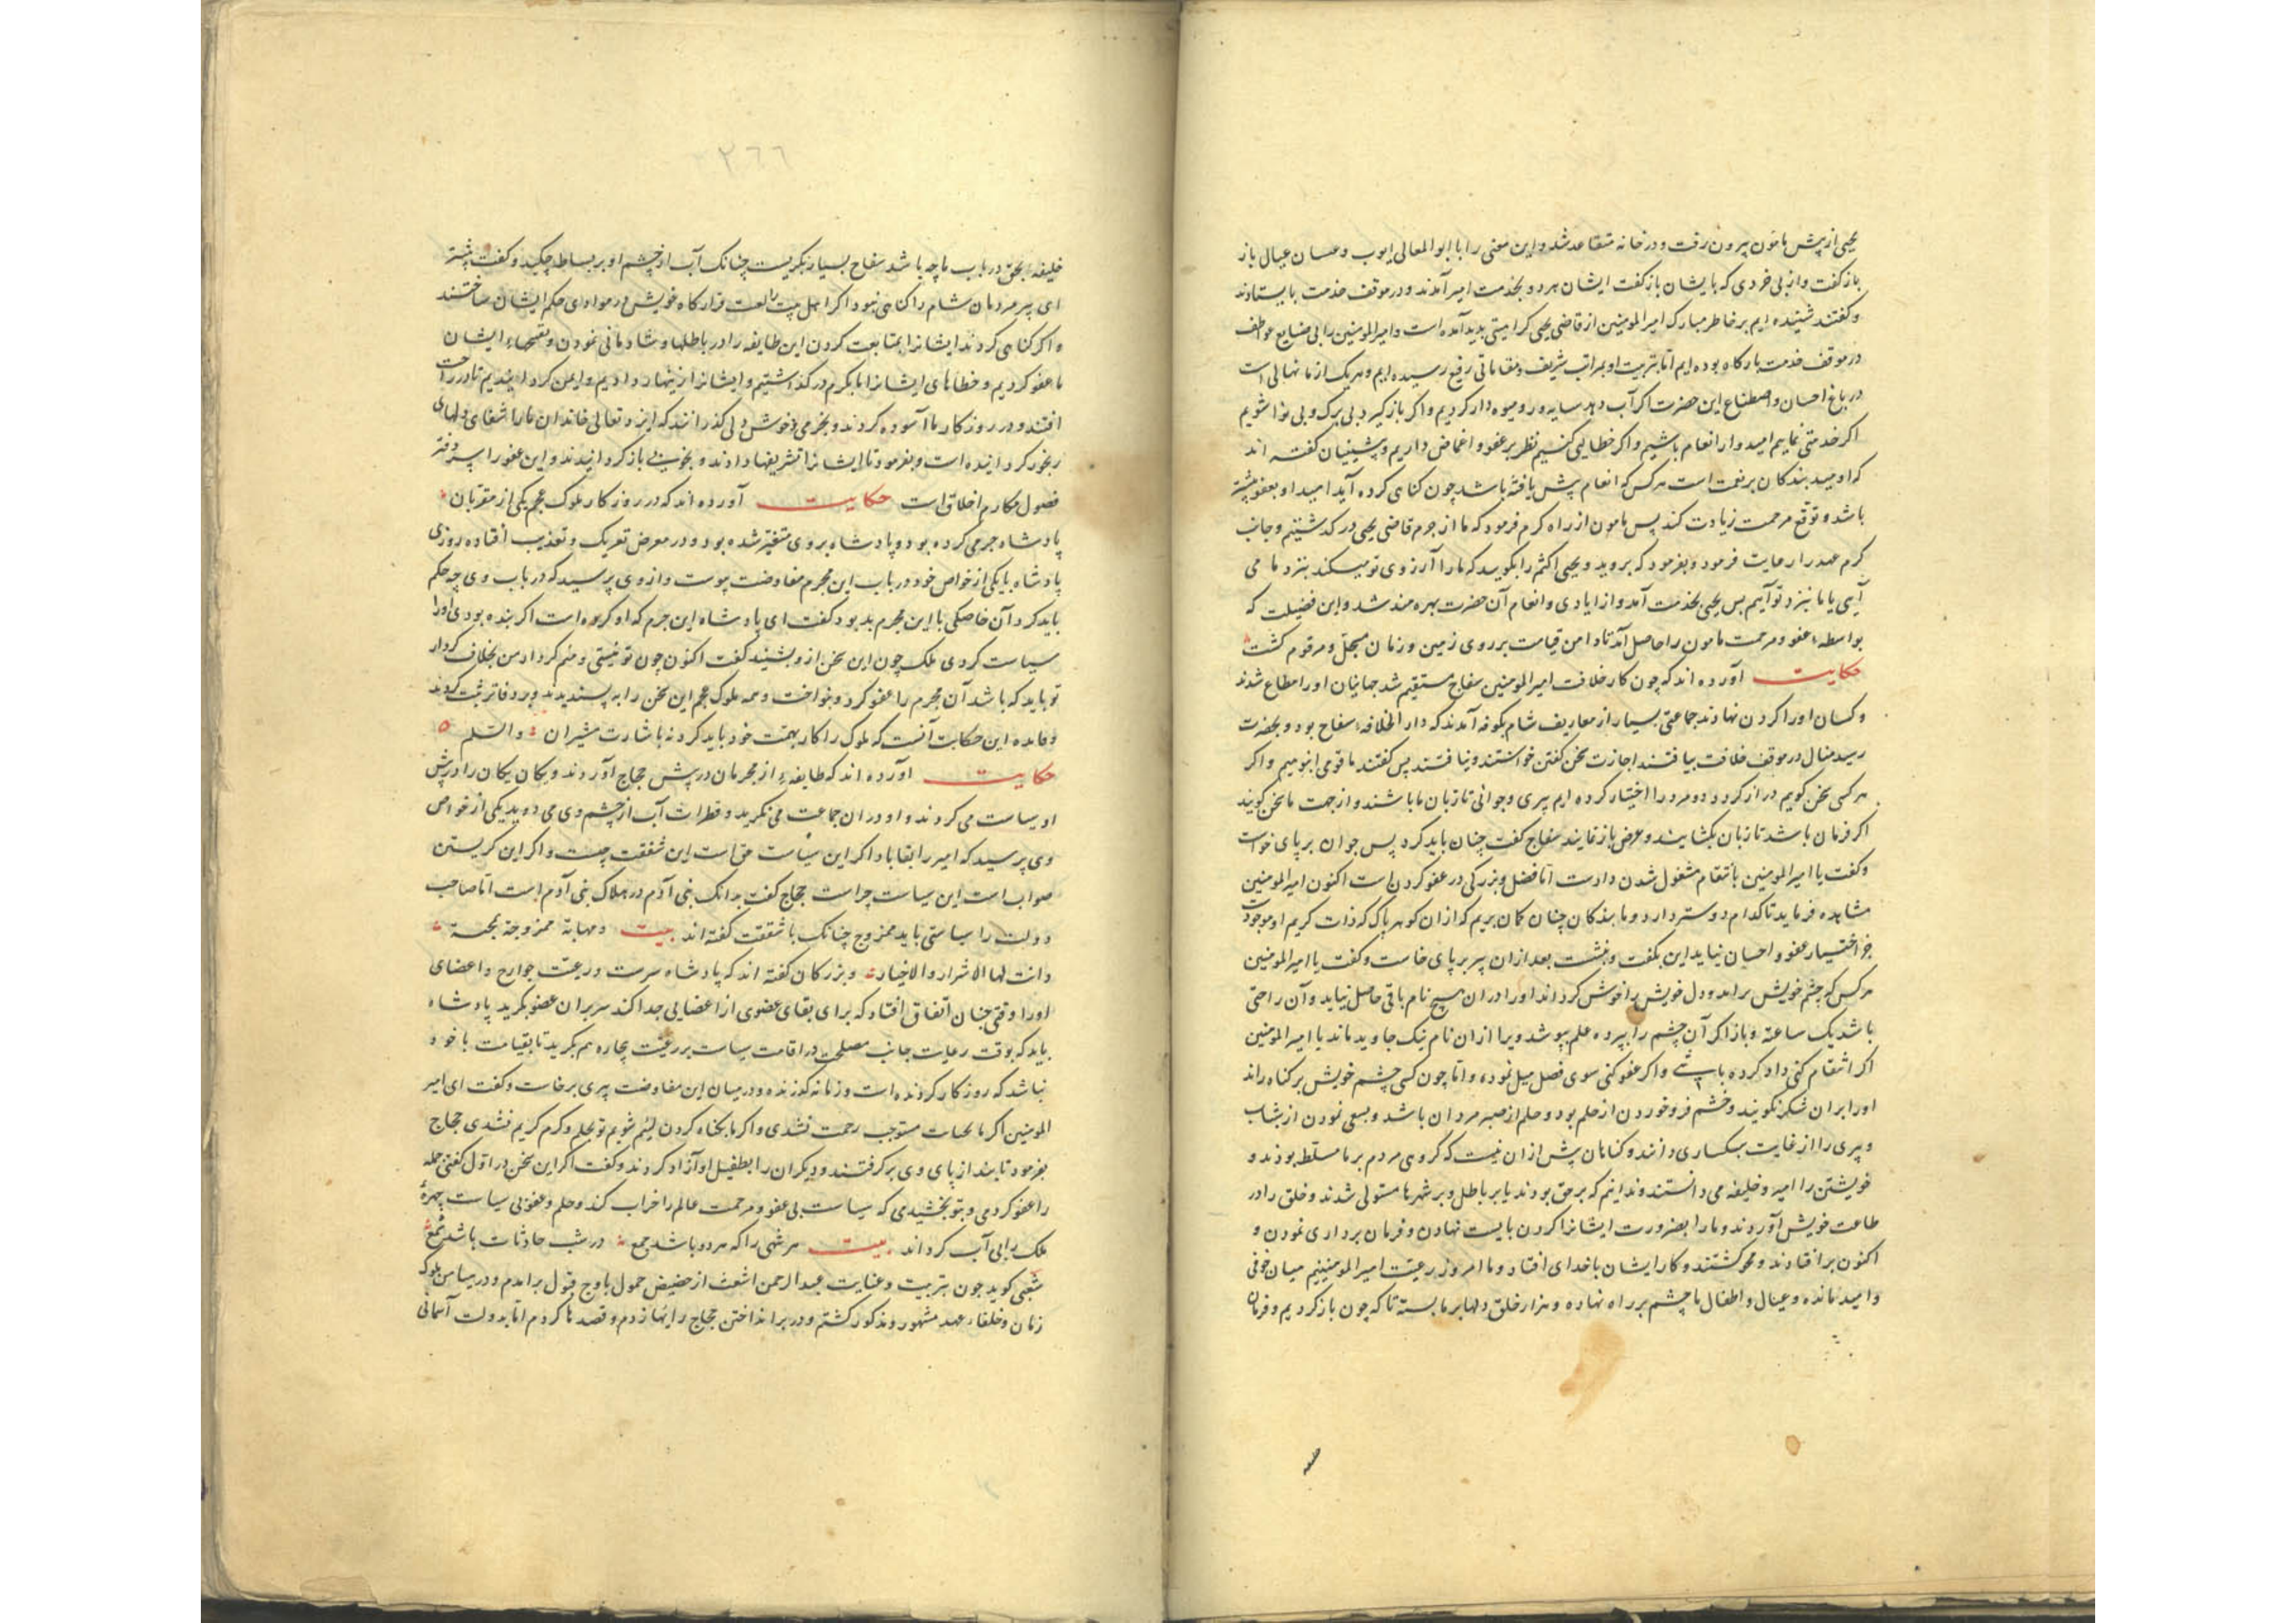 یحیی از پیش مامون بیرون رفت و در خانه متقاعد شد و این معنی را با ابو المعالی ایوب و عسان عبال باز
باز گفت و از بی خردی که بایشان باز گفت ایشان هر دو بخدمت امیر آمدند و در موقف خدمت بایستادند
و گفتند شنیده ایم بر خاطر مبارک امیر المومنین از قاضی یحیی کراهیتی پدید آمده است و امیر المومنین را بی ضایع عواطف
در موقف خدمت بارکاه بوده ایم اما بتربیت او بمراتب شریف و مقاماتی رفیع رسیده ایم و هر یک از ما نهالی است
در باغ احسان و اصطناع این حضرت اکر آب دهد سایه ور و میوه دار کردیم و اکر باز کیرد بی برک و بی نوا شویم
اکر خدمتی نماییم امیدوار انعام باشیم و اکر خطایی کنیم نظر بر عفو و اغماض داریم و پیشینیان کفته اند
که اومید بندکان بر نعمت است هر کس که انعام پیش یافته باشد چون کناهی کرده آید امید او بعفو بیشتر
باشد و توقع مرحمت زیادت کند پس مامون از راه کرم فرمود که ما از جرم قاضی یحیی در کذشتیم و جانب
کرم عهد را رعایت فرمود و بفرمود که بروید و یحیی اکثم را بکویید که ما را آرزوی تو میکند بنزد ما می
آیی یا ما بنزد تو آییم پس یحیی بخدمت آمد و از ایادی و انعام آن حضرت بهره مند شد و این فضیلت که
بواسطه عفو و مرحمت مامون را حاصل آمد تا دامن قیامت بر روی زمین و زمان مسجل و مرقوم کشت
حکایت آورده اند که چون کار خلافت امیر المومنین سفاح مستقیم شد جهانیان او را مطاع شدند
و کسان او را کردن نهادند جماعتی بسیار از معاریف شام بکوفه آمدند که دار الخلافه سفاح بود و بحضرت
رسید مثال در موقف خلافت بیافتند اجازت سخن کفتن خواستند و نیافتند پس کفتند ما قومی انبوهیم و اکر
هر کسی سخن کویم دراز کردد دو مرد را اختیار کرده ایم پیری و جوانی تا زبان ما باشند و از جهت ما سخن کویند
اکر فرمان باشد تا زبان بکشایند و عرض باز نمایند سفاح کفت چنان باید کرد پس جوان بر پای خواست
و کفت یا امیر المومنین بانتقام مشغول شدن دادست اما فضل و بزرکی در عفو کردن است اکنون امیر المومنین
مشاهده فرماید تا کدام دوستر دارد و ما بندکان چنان کمان بریم که از ان کوهر پاک که ذات کریم او موجودست
جز اختیار عفو و احسان نیاید این بکفت و بنشست بعد از ان پیر بر پای خاست و کفت یا امیر المومنین
هر کس که خشم خویش براند و دل خویش را خوش کرداند او را در ان هیچ نام باقی حاصل نیاید و آن راحتی
باشد یک ساعته و باز اکر آن خشم را بپرده حلم بپوشد ویرا از ان نام نیک جاوید ماند یا امیر المومنین
اکر انتقام کنی داد کرده باشی و اکر عفو کنی سوی فضل میل نموده و اما چون کسی خشم خویش بر کناه راند
او را بر ان شکر نکویند و خشم فرو خوردن از حلم بود و حلم از صبر مردان باشد و بسعی نمودن از شاب
و پیری را از غایت سبکساری دانند و کناهان پیش ازان نیست که کروهی مردم بر ما مسلط بودند و
خویشتن را امیر و خلیفه می دانستند و ندانیم که بر حق بودند یا بر باطل و بر شهرها مستولی شدند و خلق را در
طاعت خویش آوردند و ما را بضرورت ایشانرا کردن بایست نهادن و فرمان برداری نمودن و
اکنون بر افتادند و محو کشتند و کار ایشان با خدای افتاد و ما امروز رعیت امیر المومنینیم میان خوفی
و امید مانده و عیال و اطفال ما چشم بر راه نهاده و هزار خلق دلها بر ما بسته تا که چون باز کردیم و فرمان
۲۶۶
خلیفه بحق در باب ما چه باشد سفاح بسیار بکریست چنانک آب از چشم او بر بساط چکید و کفت
ای پیر مردمان شام را کناهی نبود اکر اهل بیت را لعنت قرارکاه خویش در موادای حکم ایشان ساختند
و اکر کناهی کردند ایشانرا بمتابعت کردن این طایفه را در باطلها و شادمانی نمودن ایشان
ما عفو کردیم و خطاهای ایشانرا بکرم در کذاشتیم و ایشانرا زینهار دادیم و ایمن کردانیدیم تا در راحت
افتند و در روزکار ما آسوده کردند و بخرمی و خوش دلی کذرانند که ایزد تعالی خاندان ما را شفای دلهای
رنجور کردانیده است و بفرمود تا ایشانرا تشریفها دادند و بخوبی باز کردانیدند و این عفو را سر دفتر
فصول مکارم اخلاق است حکایت آورده اند که در روزکار ملوک عجم یکی از مقربان
پادشاه جرمی کرده بود و پادشاه بر وی متغیر شده بود و در معرض تعریک و تعذیب افتاده روزی
پادشاه با یکی از خواص خود در باب این مجرم مفاوضت پیوست و از وی پرسید که در باب وی چه حکم
باید کرد آن خاصکی با این مجرم بد بود کفت ای پادشاه این جرم که او کرده است اکر بنده بودی او را
سیاست کردی ملک چون این سخن از و بشنید کفت اکنون چون تو نیستی و منم کردار من بخلاف کردار
تو باید که باشد آن مجرم را عفو کرد و بنواخت و همه ملوک عجم این سخن را به پسندیدند و بر دفاتر ثبت کردند
و فایده این حکایت آنست که ملوک را کار بهمت خود باید کرد نه باشارت مشیران و السلم
حکایت آورده اند که طایفه از مجرمان در پیش حجاج آوردند و یکان یکان را در پیش
او سیاست می کردند و او در ان جماعت می نکرید و قطرات آب از چشم وی می دوید یکی از خواص
وی پرسید که امیر را بقا باد اکر این سیاست حق است این شفقت چیست و اکر این کریستن
صواب است این سیاست چراست حجاج کفت بدانک بنی آدم در هلاک بنی آدم است اما صاحب
دولت را سیاستی باید ممزوج چنانک با شفقت کفته اند بیت و مهابة ممزوجة بمحبة
دانت لها الاشرار و الاخیار و بزرکان کفته اند که پادشاه سرست و رعیت جوارح و اعضای
او را وقتی چنان اتفاق افتاد که برای بقای عضوی از اعضایی جدا کند سر بران عضو بکرید پادشاه
باید که بوقت رعایت جانب مصلحت در اقامت سیاست بر رعیت بیچاره هم بکرید تا بقیامت ماخوذ
نباشد که روزکار کردنده است و زمانه کذرنده و در میان این مفاوضت پیری برخاست و کفت ای امیر
المومنین اکر ما بحسنات مستوجب رحمت نشدی و اکر ما بکناه کردن لئیم شویم تو بحلم و کرم کریم نشدی حجاج
بفرمود تا بند از پای وی بر کرفتند و دیکران را بطفیل او آزاد کردند و کفت اکر این سخن در اول کفتی جمله
را عفو کردمی و بتو بخشیدی که سیاست بی عفو و مرحمت عالم را خراب کند و حلم و عفو بی سیاست چهره
ملک را بی آب کرداند بیت هر شهی را که هر دو باشد جمع در شب حادثات باشد شمع
شعبی کوید چون بتربیت و عنایت عبد الرحمن اشعث از حضیض خمول باوج قبول برامدم و در میامن ملوک
زمان و خلفاء عهد مشهور و مذکور کشتم و در بر انداختن حجاج رایها زدم و قصدها کردم اما بدولت آسمانی